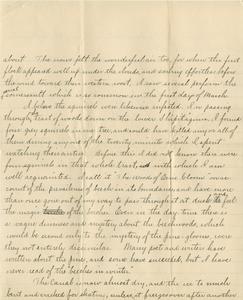 about. The crows felt the wonderful air too, for when the first
flock appeared well up under the clouds, and soaring effortless before
the wind toward their western roost, I saw several perform the
somersault which is so common in the first days of March.
I believe the squirrels were likewise infected. In passing
through the tract of woods down on the lower I found
four grey squirrels in one tree, and could have killed any or all of
them during any one of the twenty minutes which I spent
watching their antics. Before this I did not know there were
four squirrels in that whole tract, with which I was
well acquainted. Shall it "The Woods of Gone" because on ac-
count of the prevalence of beech in its boundary, and have more
than once gone out of my way to pass through it at dusk to feel
the magic of the beeches. Even in the day time there is
a vague dimness and mystery about the beechwoods, which
would be second only to the mystery of the pine-glooms, were
they not entirely dissimilar. Many poets and writers have
written about the pine, and some have succeeded, but I have
never read of the "beeches in winter."
The Canal is now almost dry, and the ice is much
bent and cracked for skating, unless it freezes over after another